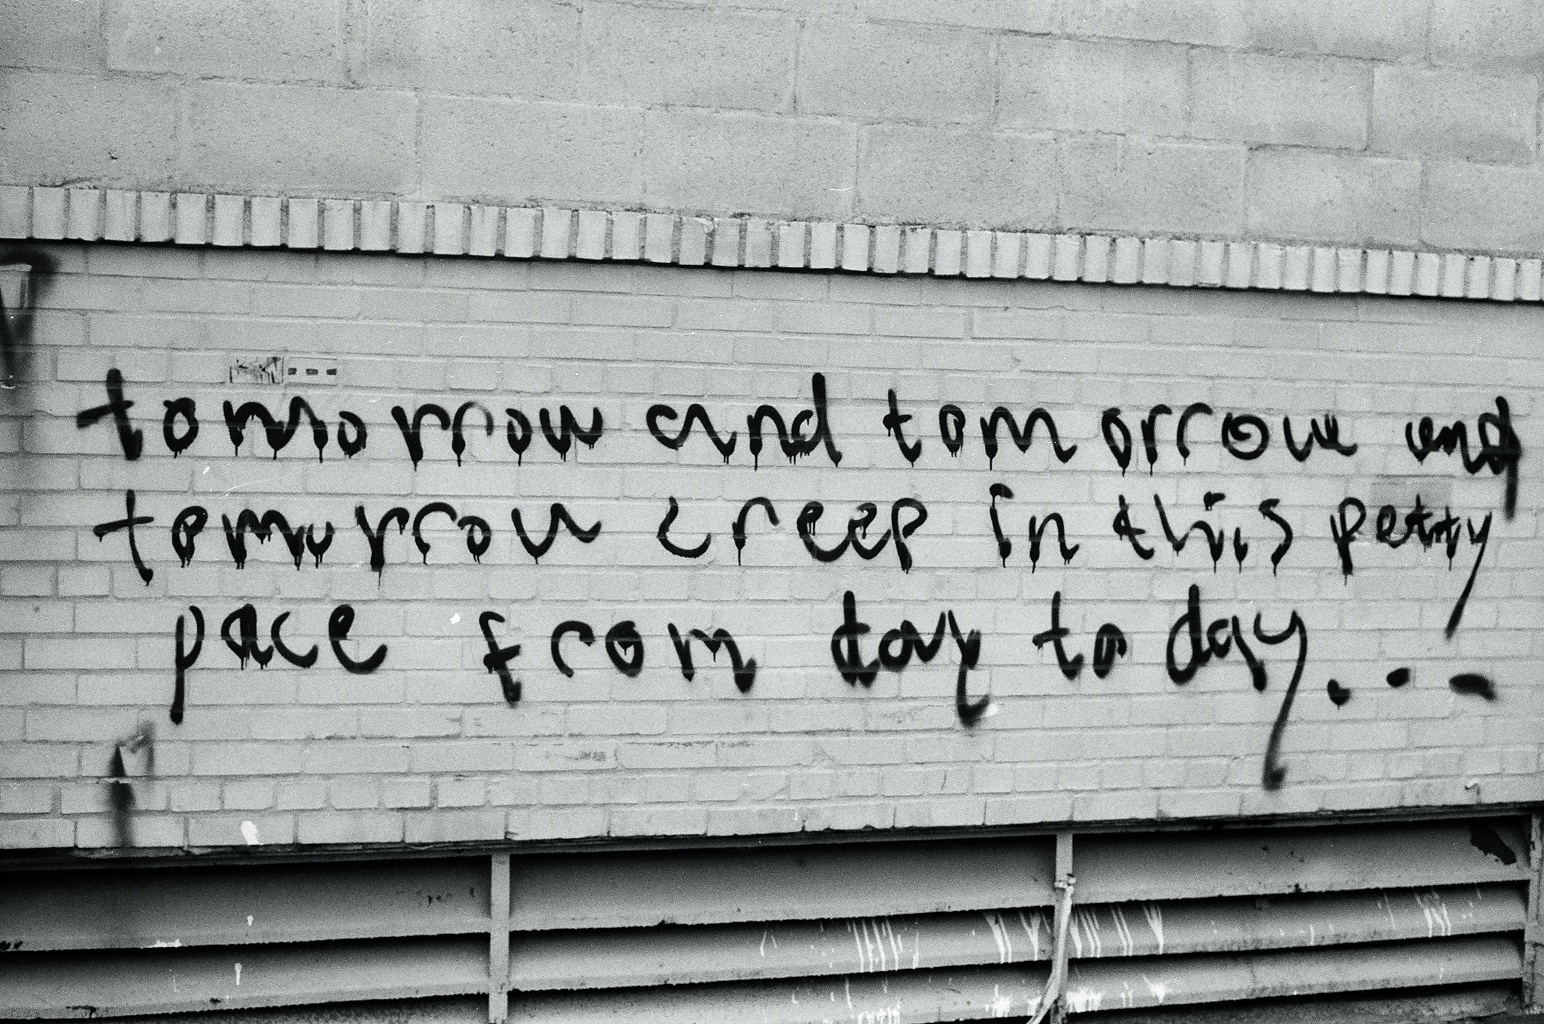 tomorrow and tomorrow and
tomorrow creep in this petty
pace from day to day...